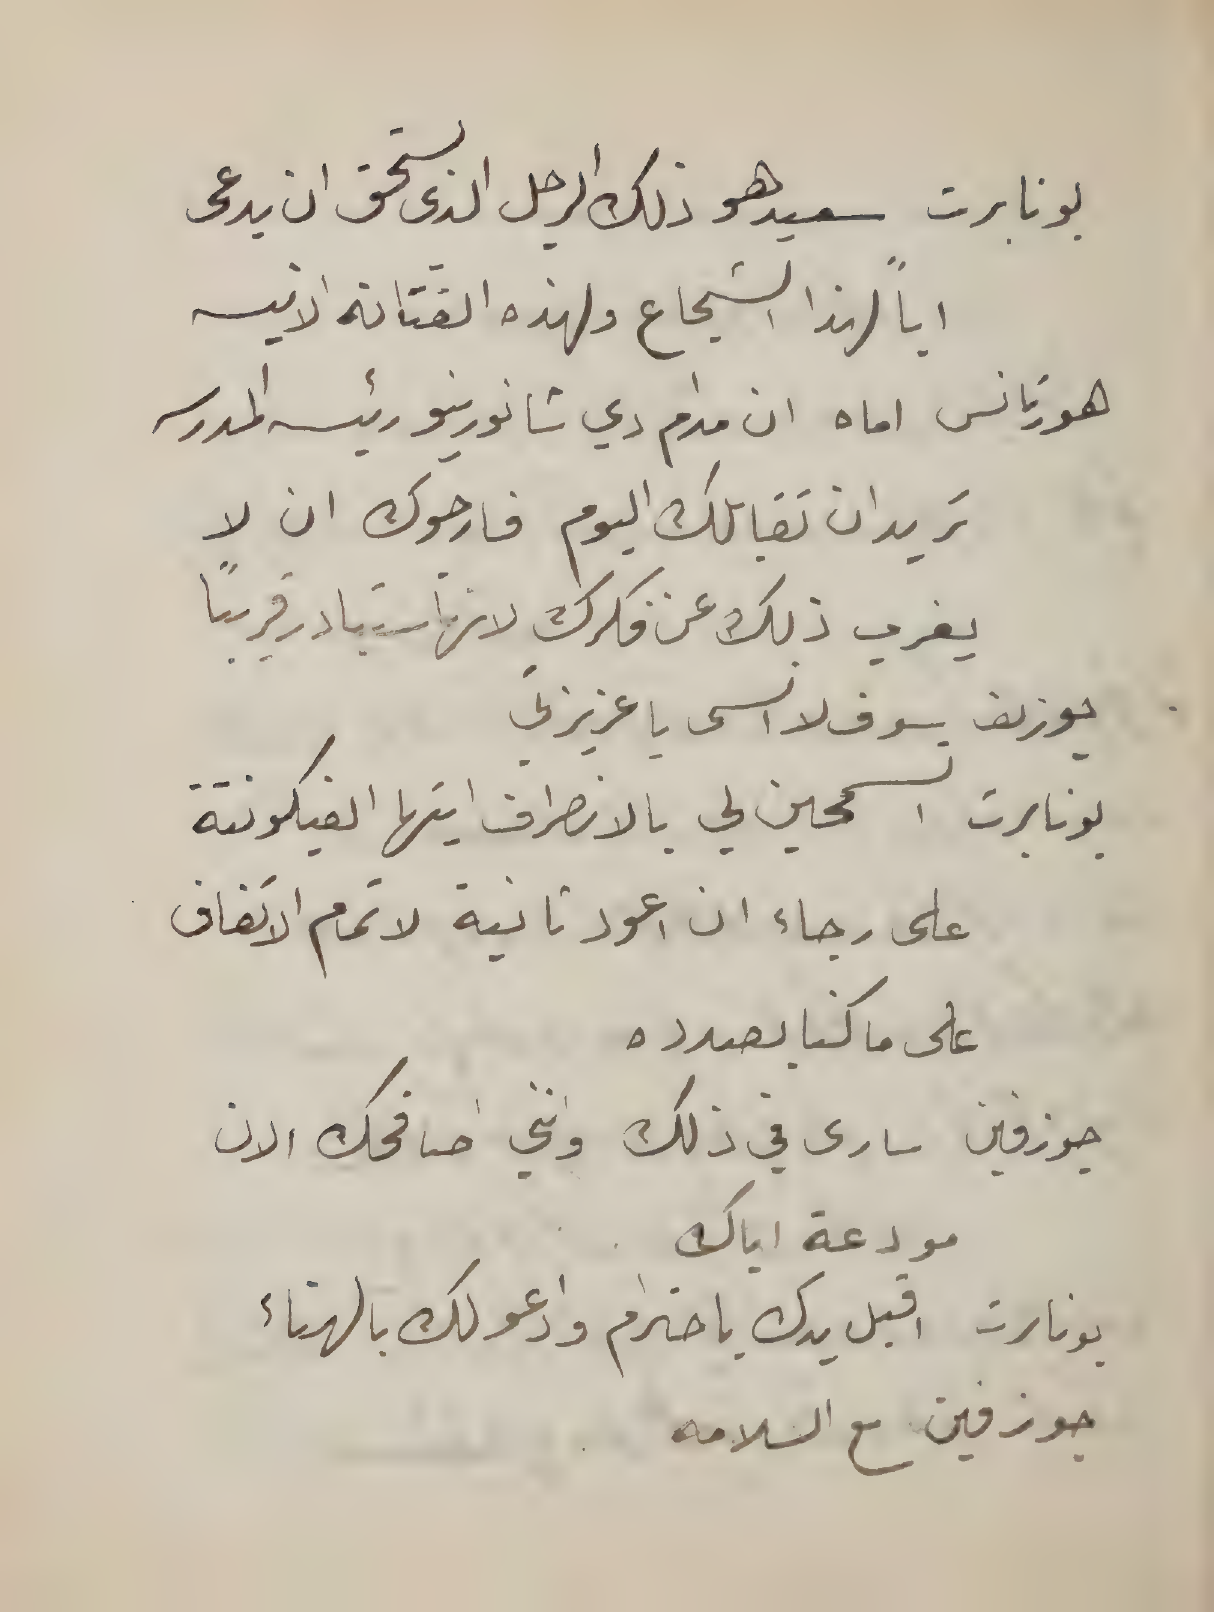 بونابرت سعيد هو ذلك الرجل الذي يستحق ان يدعى
اباً لهذا الشجاع ولهذه الفتانة الانيسه
هورتانس اماه ان مدام دي شانورينو رئيسه المدرسه
تريد ان تقابلك اليوم فارجوك ان لا
يغرب ذلك عن فكرك لانها ستبادر قريبًا
جوزفين سوف لا انسى يا عزيزتي
بونابرت اتسمحين لي بالانصراف ايتها الفيكونتة
على رجاء ان اعود ثانية لاتمام الاتفاق
على ما كنا بصدده
جوزفين سارى في ذلك وانني اصافحك الان
مودعة اياك
بونابرت اقبل يدك باحترام وادعو لك بالهناء
جوزفين مع السلامه